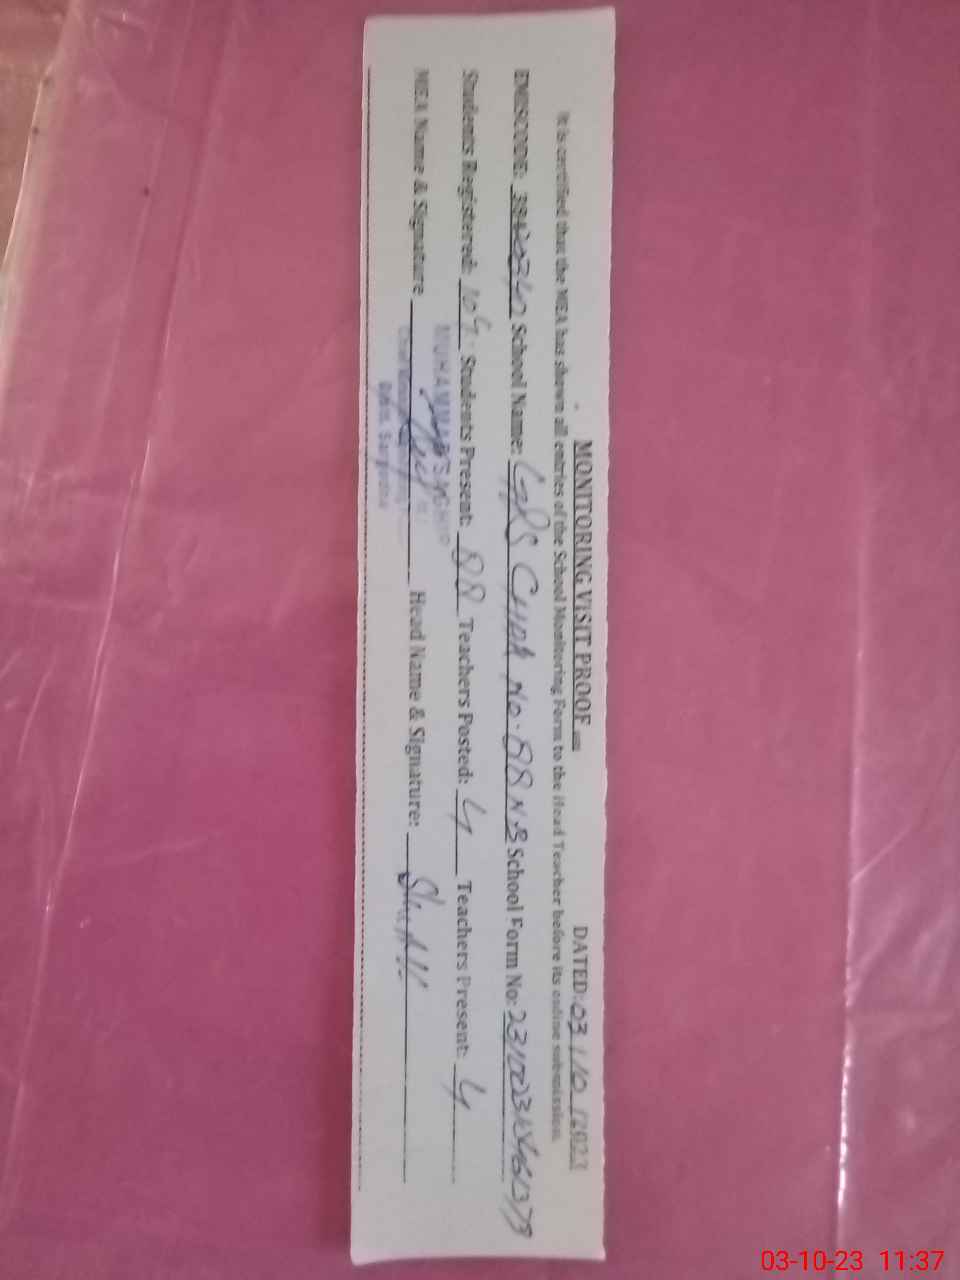 MONITORING VISIT PROOF DATED: 03/10/2023
It is certified that the MEA has shown all entries of the School Monitoring Form to the Head Teacher before its online submission.
EMISCODE: School Name: GPS CHAK NO. 88 NB School Form No:
Students Registered: 109 Students Present: 88 Teachers Posted: 4 Teachers Present: 4
MEA Name & Signature Head Name & Signature:
MUHAMMAD
Distt. Sargodha
03-10-23 11:37